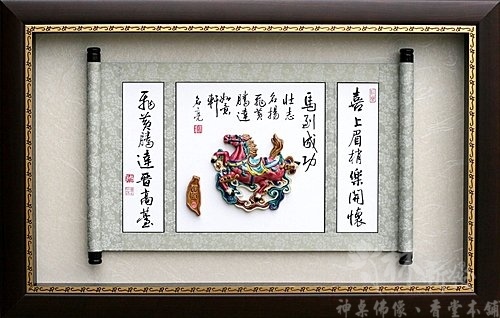 喜上眉梢樂開懷
馬到成功
壯志
名揚
飛黃
騰達
如意
軒
名亮
飛黃騰達晉高臺
神桌佛像、青堂本舖